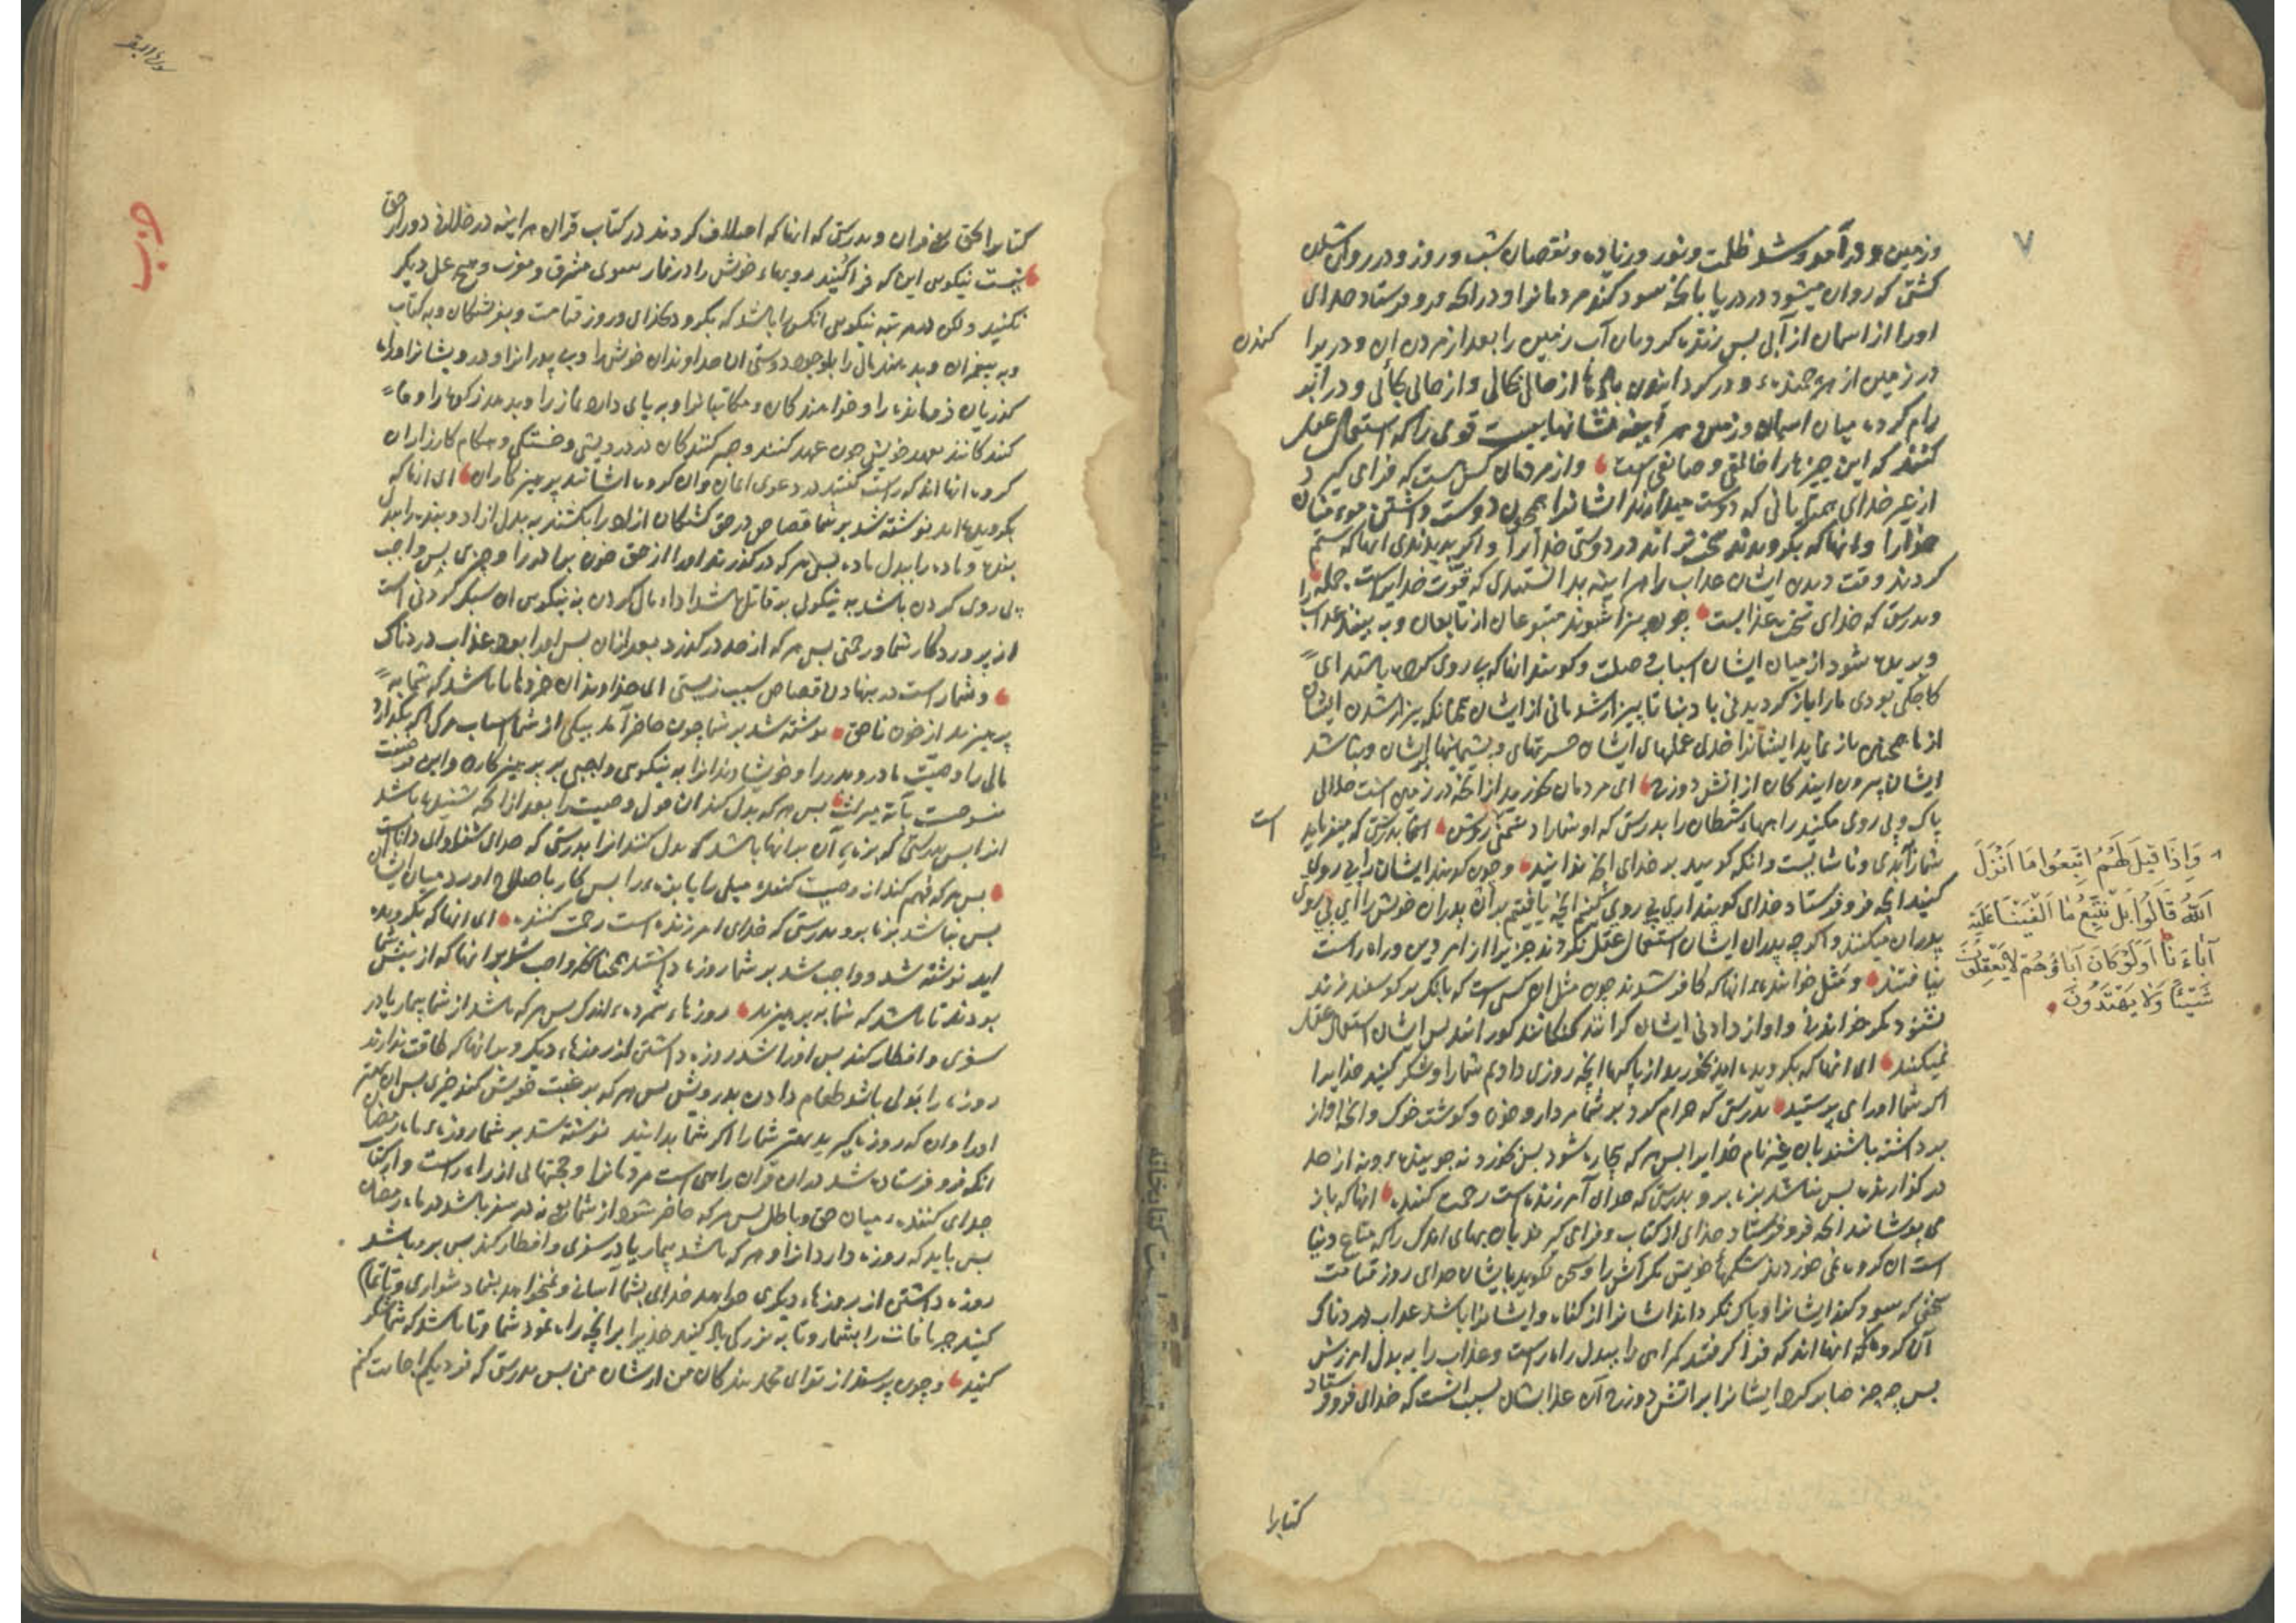 ۷
وزمین و در آمد و شد ظلمت و نور و زیاده و نقصان شب و روز و در روان شدن
کشتی که روان میشود در دریا بانچه سود کند مردمانرا و در انکه فرو فرستاد خدای
اورا از اسمان از آبی پس زنده کرد بآن آب زمین را بعد از مردن ان و در پرا
کندن
در زمین از هر جنبنده و در گردانیدن بادها از حالی بحالی و از جائی بجائی و در ابر
رام کرده میان اسمان و زمین هر اینه نشانهاییست قومی را که استعمال عقل
کنند که این چیزها را خالقی و صانعی است وازمردمان کسی است که فرا می گیرد
از غیر خدای همتایانی که دوست میدارند ایشانرا همچون دوست داشتن مومنان
خدایرا و انها که بگرویدند سخت تر اند در دوستی خدایرا و اگر بدیدندی انها که ستم
کردند وقت دیدن ایشان عذاب را هر اینه بدانستندی که قوت خدایراست جمله را
و بدرستی که خدای سخت عذابست چون بیزار شوند متبوعان از تابعان و به بینند عذاب
و بریده شود از میان ایشان اسباب وصلت و گویند انها که پی روی کرده باشند ای
کاجکی بودی مارا باز گردیدنی با دنیا تا بیزار شدمانی از ایشان همچنانکه بیزار شدن ایشان
از ما همچنین باز نماید ایشانرا خدای عملهای ایشان حسرتهای و پشیمانیها بر ایشان و نباشند
ایشان بیرون ایندگان از اتش دوزخ ای مردمان بخورید از انچه در زمین است حلالی
پاک و پی روی مکنید راههاء شیطان را بدرستی که او شمارا دشمنی روشن اینما بدرستی که میفرماید
است
شمارا بدی و ناشایست و انکه گویید بر خدای انچه ندانید و چون گویند ایشانرا پی روی
کنید انچه فرو فرستاد خدای گویند اری پی روی کنیم انچه یافتیم بران پدران خویش را ای پی روی
پدران میکنند و اگر چه پدران ایشان استعمال عقل نکردند چیزیرا از امر دین و راه راست
نیافتند و مثل خواننده انها که کافر شدند چون مثل ان کسی است که بانک بر گوسفند زند
نشنود مگر خواندنی و اواز دادنی ایشان کرانند گنگانند کورانند پس ایشان استعمال عقل
نمیکنند ای انها که بگرویده اید بخورید از پاکیها انچه روزی دادیم شمارا و شکر کنید خدایرا
اگر شما اورا می پرستید بدرستی که حرام کرد بر شما مردار و خون و گوشت خوک و انچه اواز
برداشته باشند بآن غیر نام خدایرا پس هر که بیچاره شود پس بخورد نه جوینده و نه از حد
در گذارنده پس نباشد بزه برو بدرستی که خدای آمرزنده است رحمت کننده انها که باز
می پوشانند انچه فرو فرستاد خدای از کتاب و فرا می گیرند بان بهای اندک را که متاع دنیا
است ان گروه نمی خورند در شکمهاء خویش مگر آتش را و سخن نگوید با ایشان خدای روز قیامت
سخنی که سود کند ایشانرا و پاک نگرداند ایشانرا از گناه و ایشانرا باشد عذاب دردناک
آن گروه که انها اند که فرا گرفتند گمراهی را ببدل راه راست و عذاب را به بدل امرزش
پس چه چیز صابر کرد ایشانرا بر اتش دوزخ آن عذابشان بسبب انست که خدای فرو فرستاد
کتابرا
وَاِذَا قِیلَ لَهُمُ اتَّبِعُوا مَا اَنْزَلَ
اللّٰهُ قَالُوا بَلْ نَتَّبِعُ مَا اَلْفَیْنَا عَلَیْهِ
آبَاءَنَا اَوَلَوْ کَانَ آبَاؤُهُمْ لَا یَعْقِلُونَ
شَیْئًا وَلَا یَهْتَدُونَ
حزب
کتابرا بحق و بدرستی که انها که اختلاف کردند در کتاب قرآن هر اینه در خلافی دورند از حق
نیست نیکویی این که فرا کنید رویهاء خویش را در نماز سوی مشرق و مغرب و هیچ عمل دیگر
نکنید ولکن نیکویی انکس را باشد که بگرود بخدای و روز قیامت و بفرشتگان و به کتاب
و به پیغمبران و بدهند مال را با وجود دوستی ان خداوندان خویش را و بی پدرانرا و درویشانرا و راه
گذریان فرومانده را و خواهندگان و مکاتبانرا و به پای دارد نماز را و بدهد زکوة را و وفا
کنندگانند بعهد خویش چون عهد کنند و صبر کنندگان در درویشی و خستگی و هنگام کارزار ان
گروه انها اند که راست گفتند در دعوی ایمان و ان گروه ایشانند پرهیزکاران ای انها که
بگرویده اید نوشته شد بر شما قصاص در حق کشتگان ازاد را بکشند به بدل ازاد و بنده را ببدل
بنده و ماده را ببدل ماده پس هر که در گذرند اورا از حق خون برادر را چیزی پس واجب
پی روی کردن باشد به نیکوئی بر قاتل باشد اداء مال کردن به نیکویی ان سبک کردنی است
از پروردگار شما و رحمتی پس هر که از حد در گذرد بعد از ان پس اورا بود عذاب دردناک
و شما راست در نهادن قصاص سبب زیستی ای خداوندان خردها تا باشد که شما به
پرهیزید از خون ناحق نوشته شد بر شما چون حاضر آمد بیکی از شما اسباب مرگ اگر بگذارد
مالی را وصیت مادر و پدر را و خویشاوندانرا به نیکویی واجبی بر پرهیزکاران و این فرضیت
منسوخست بآیه میراث پس هر که بدل کند ان قول وصیت را بعد از انکه شنیده باشد
انرا پس بدرستی که بزه آن بر انها باشد که بدل کنند انرا بدرستی که خدای شنوای دانا است
پس هر که فهم کند از وصیت کننده میلی را یا بزه را پس کار باصلاح اورد میان ایشان
پس نباشد بزه برو بدرستی که خدای امرزنده است رحمت کننده ای انها که بگرویده
اید نوشته شد و واجب شد بر شما روزه داشتن همچنانکه واجب شد بر انها که از پیش شما
بودند تا باشد که شما به پرهیزید روزهاء شمرده اندک پس هر که باشد از شما بیمار یا در
سفری و افطار کند پس اورا باشد روزه داشتن از روزهاء دیگر و بر انها که طاقت ندارند
روزه را بدلی باشد طعام دادن بدرویش پس هر که برغبت خویش کند خیری پس ان بهتر
اورا وان که روزه گیرید بهتر شمارا اگر شما بدانید نوشته شد بر شما روزه ماه رمضان
انکه فرو فرستاده شد دران قرآن راهی است مردمانرا و حجتهائی از راه راست و از کتاب
جدای کننده میان حق و باطل پس هر که حاضر شود از شما نه در سفر باشد در ماه رمضان
پس باید که روزه دارد انرا و هر که باشد بیمار یا در سفری و افطار کند پس برو باشد
روزه داشتن از روزهاء دیگری خواهد خدای بشما اسانی و نمیخواهد بشما دشواری و تا تمام
کنید را بشمار و تا به بزرگی یاد کنید خدایرا برانچه راه نمود شما و تا باشد که شما شکر
کنید و چون پرسند از تو ای محمد بندگان من از شان من پس بدرستی که نزدیکم اجابت کنم